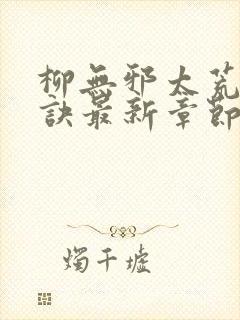 柳無邪太荒
訣最新章節
燭千墟